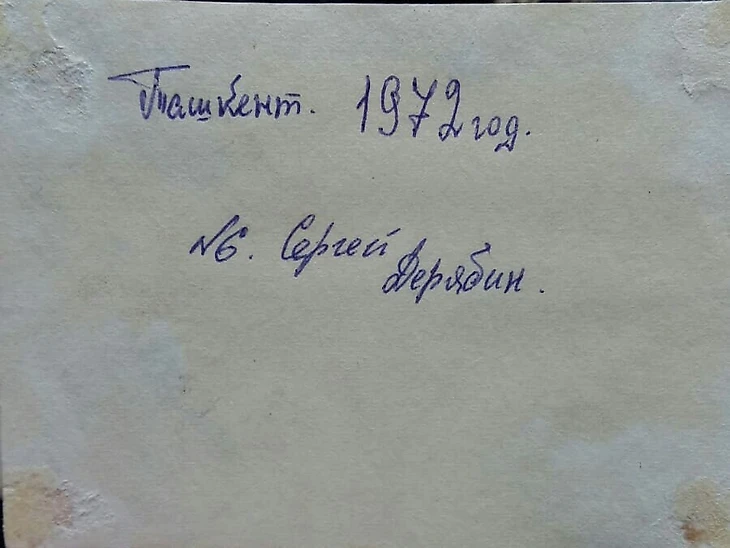 Ташкент. 1972 год.
№6. Сергей Дерябин.